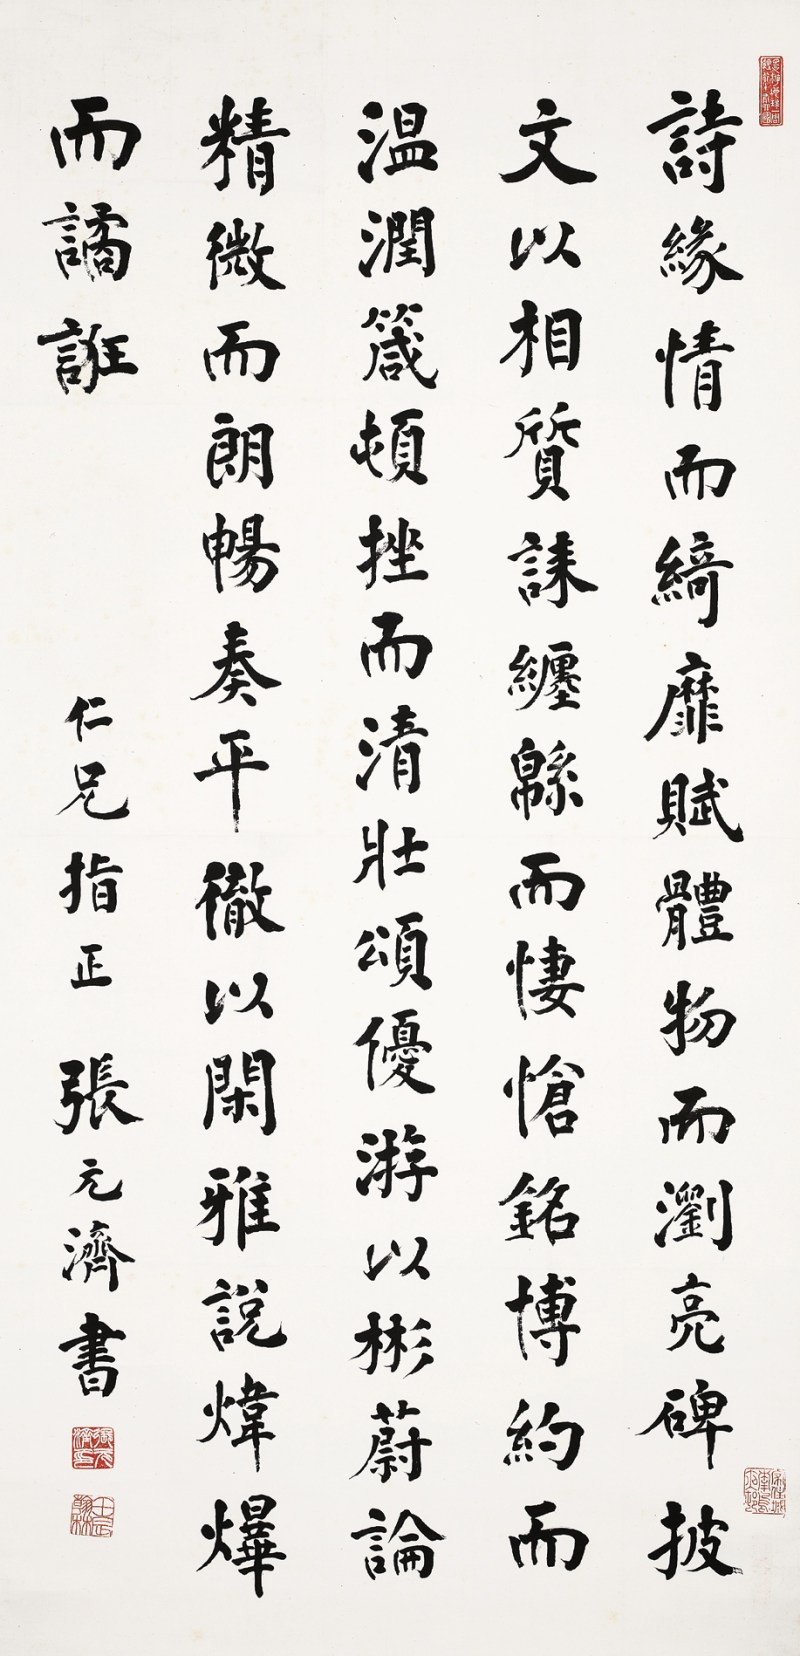 詩緣情而綺靡賦體物而瀏亮碑披
文以相質誄纏緜而悽愴銘博約而
温潤箴頓挫而清壯頌優游以彬蔚論
精微而朗暢奏平徹以閑雅說煒爗
而譎誑
仁兄指正 張元濟書
張元濟印
壬辰翰林